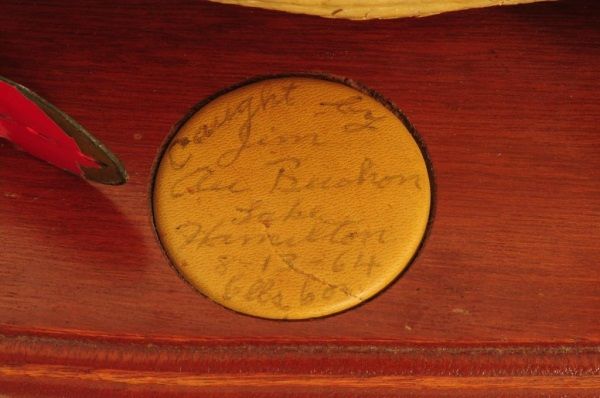 Caught by
Jim
Au Buchon
Lake
Hamilton
8-12-64
6 lbs 6 oz